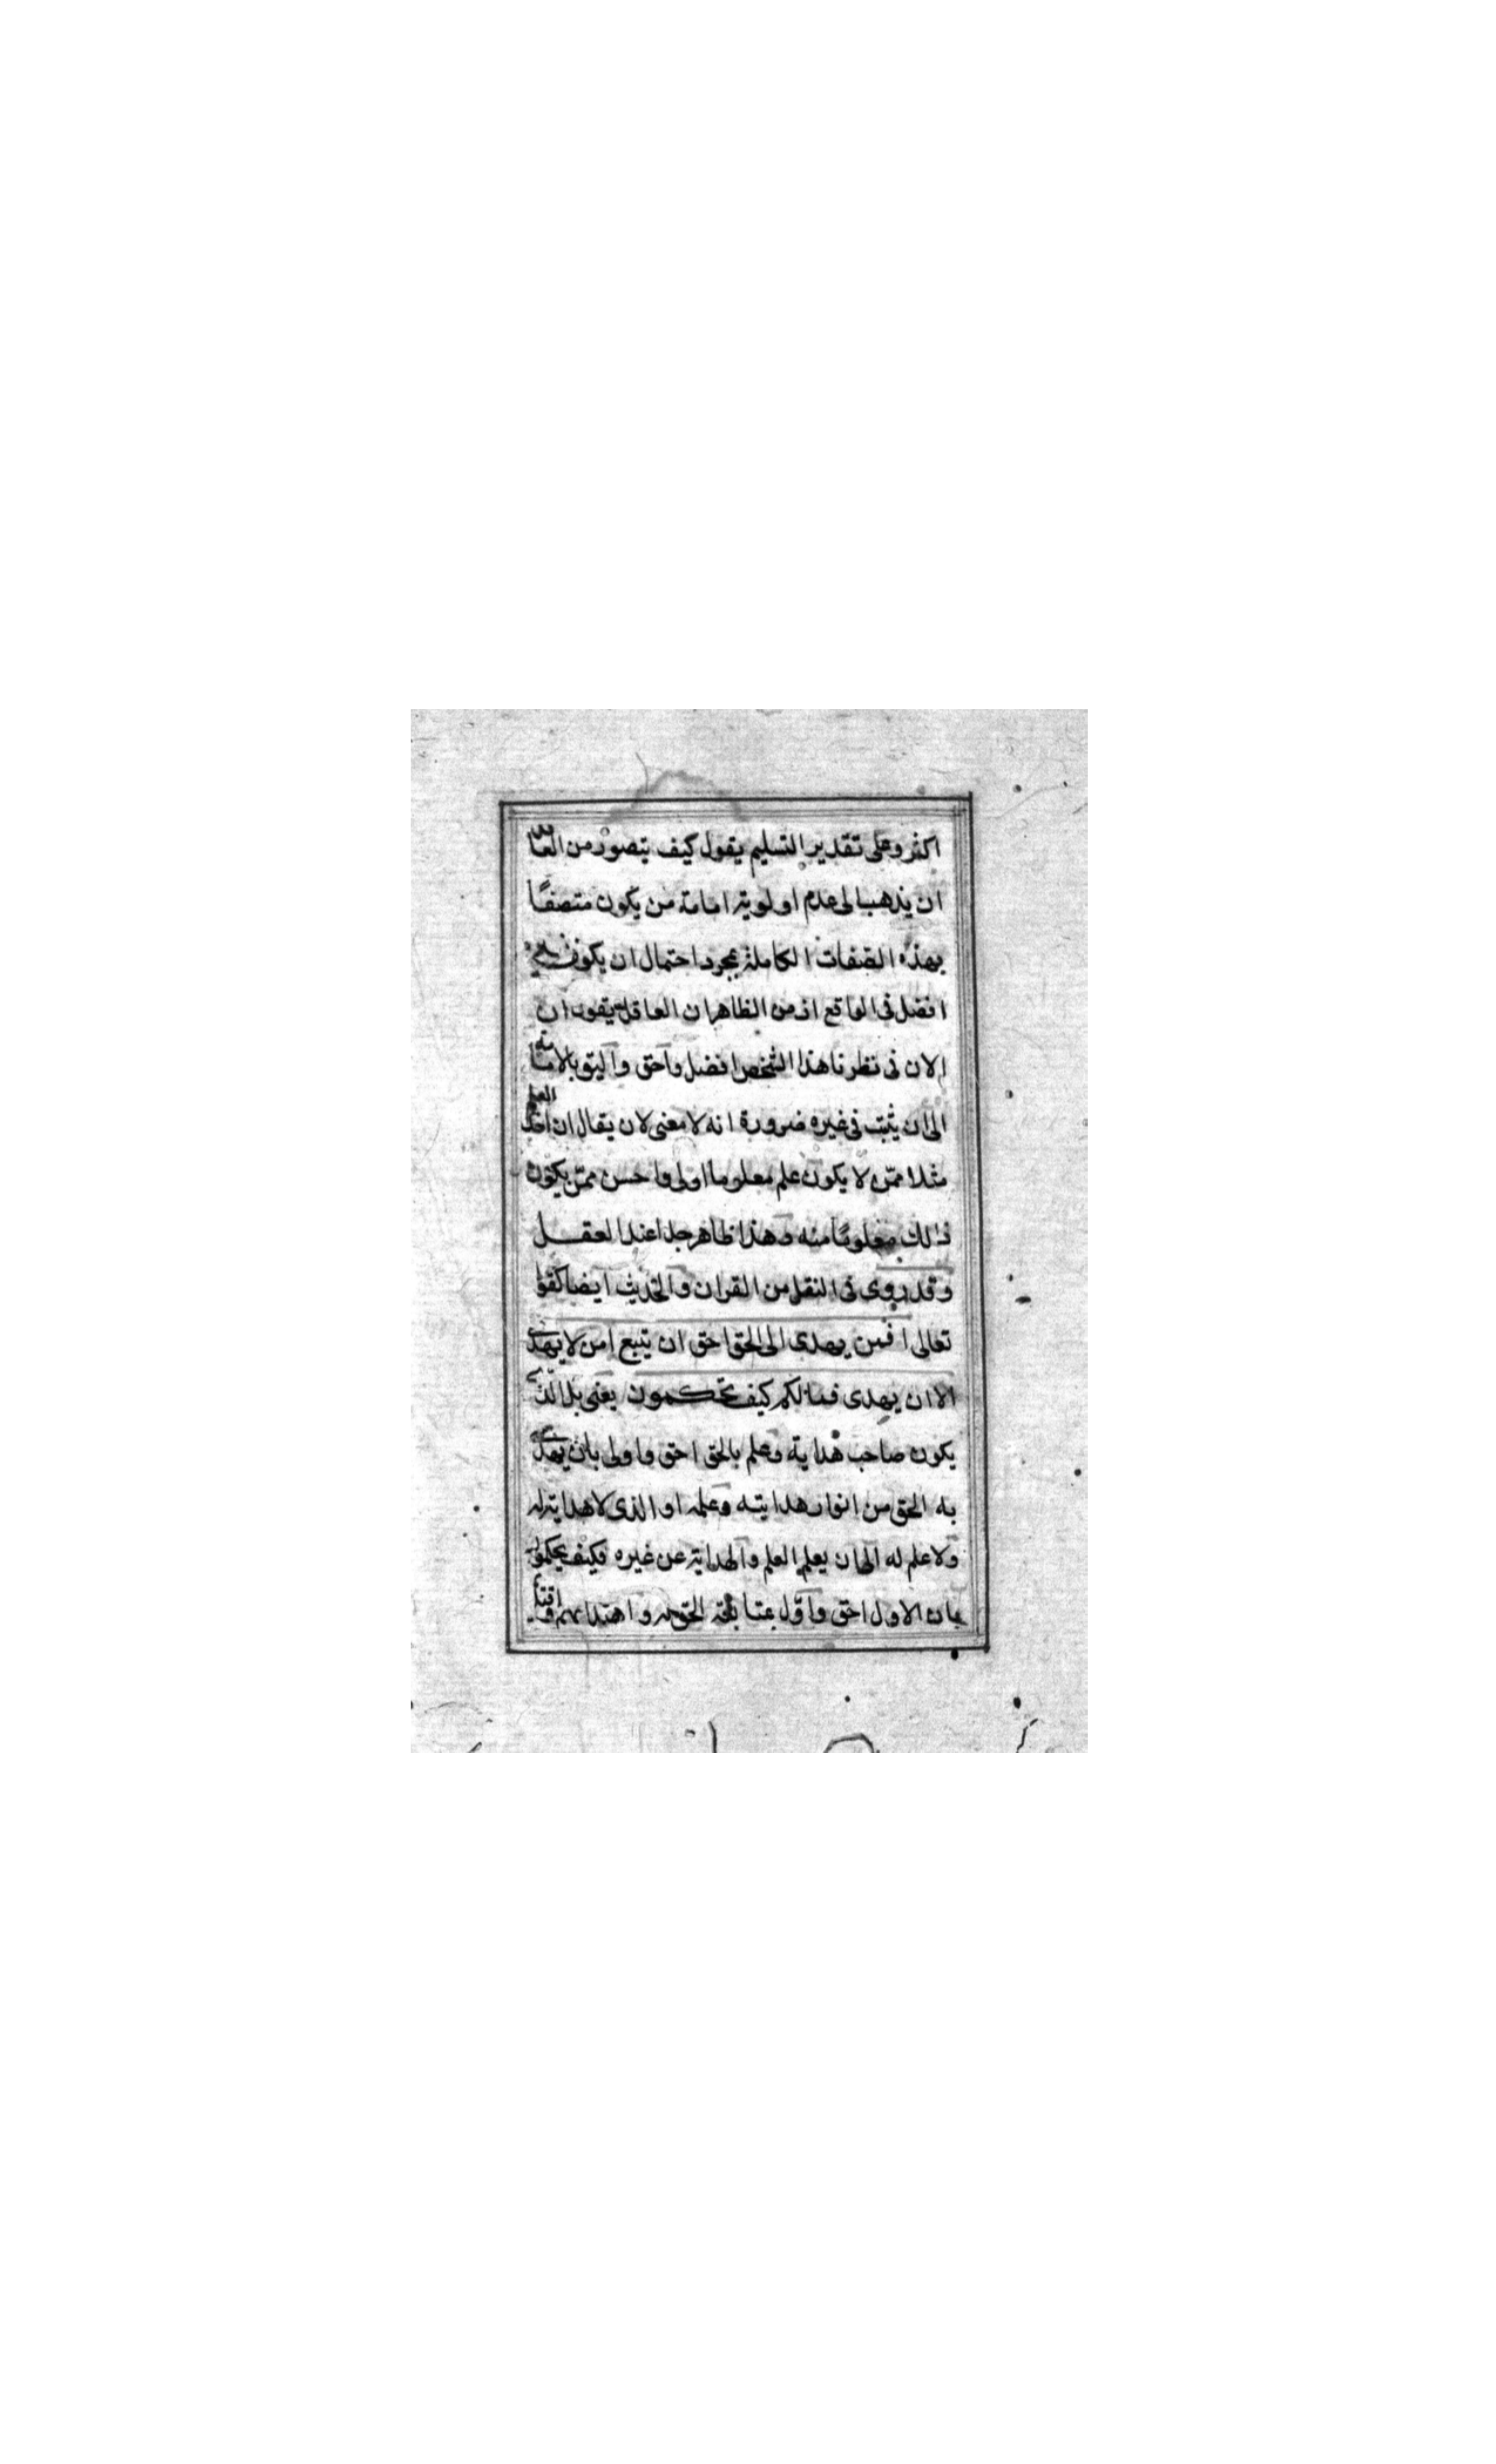 اكثر وعلى تقدير التسليم يقول كيف يتصور من العاقل
ان يذهب الى عدم اولوية امامة من يكون متصفًا
بهذه الصفات الكاملة بمجرد احتمال ان يكون غيره
افضل فى الواقع اذ من الظاهر ان العاقل يقول ان
الان فى نظرنا هذا الشخص افضل واحق واليق بالامامة
الى ان يثبت فى غيره ضرورة انه لا معنى لان يقال ان اخذ العلم
مثلا ممن لا يكون علم معلوما اولى واحسن ممن يكون
ذلك معلومًا منه وهذا ظاهر جدا عند العقل
وقد روى فى النقل من القران والحديث ايضا كقوله
تعالى افمن يهدى الى الحق احق ان يتبع امن لا يهدى
الا ان يهدى فما لكم كيف تحكمون يعنى بل الذى
يكون صاحب هداية وعلم بالحق احق واولى بان يهدى
به الحق من انوار هدايته وعلمه او الذى لا هداية له
ولا علم له الى ان يعلم العلم والهداية عن غيره فكيف يحكمون
بان الاول احق و بمتابعة الحق له واهتدائهم